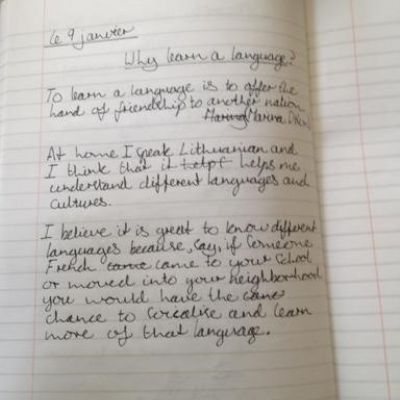 le 9 janvier
Why learn a language?
To learn a language is to offer the
hand of friendship to another nation
Marina Marina
At home I speak Lithuanian and
I think that it helpt helps me
understand different languages and
cultures.
I believe it is great to know different
languages because, say, if someone
French came came to your school
or moved into your neighborhood
you would have the
chance to socialise and learn
more of that language.